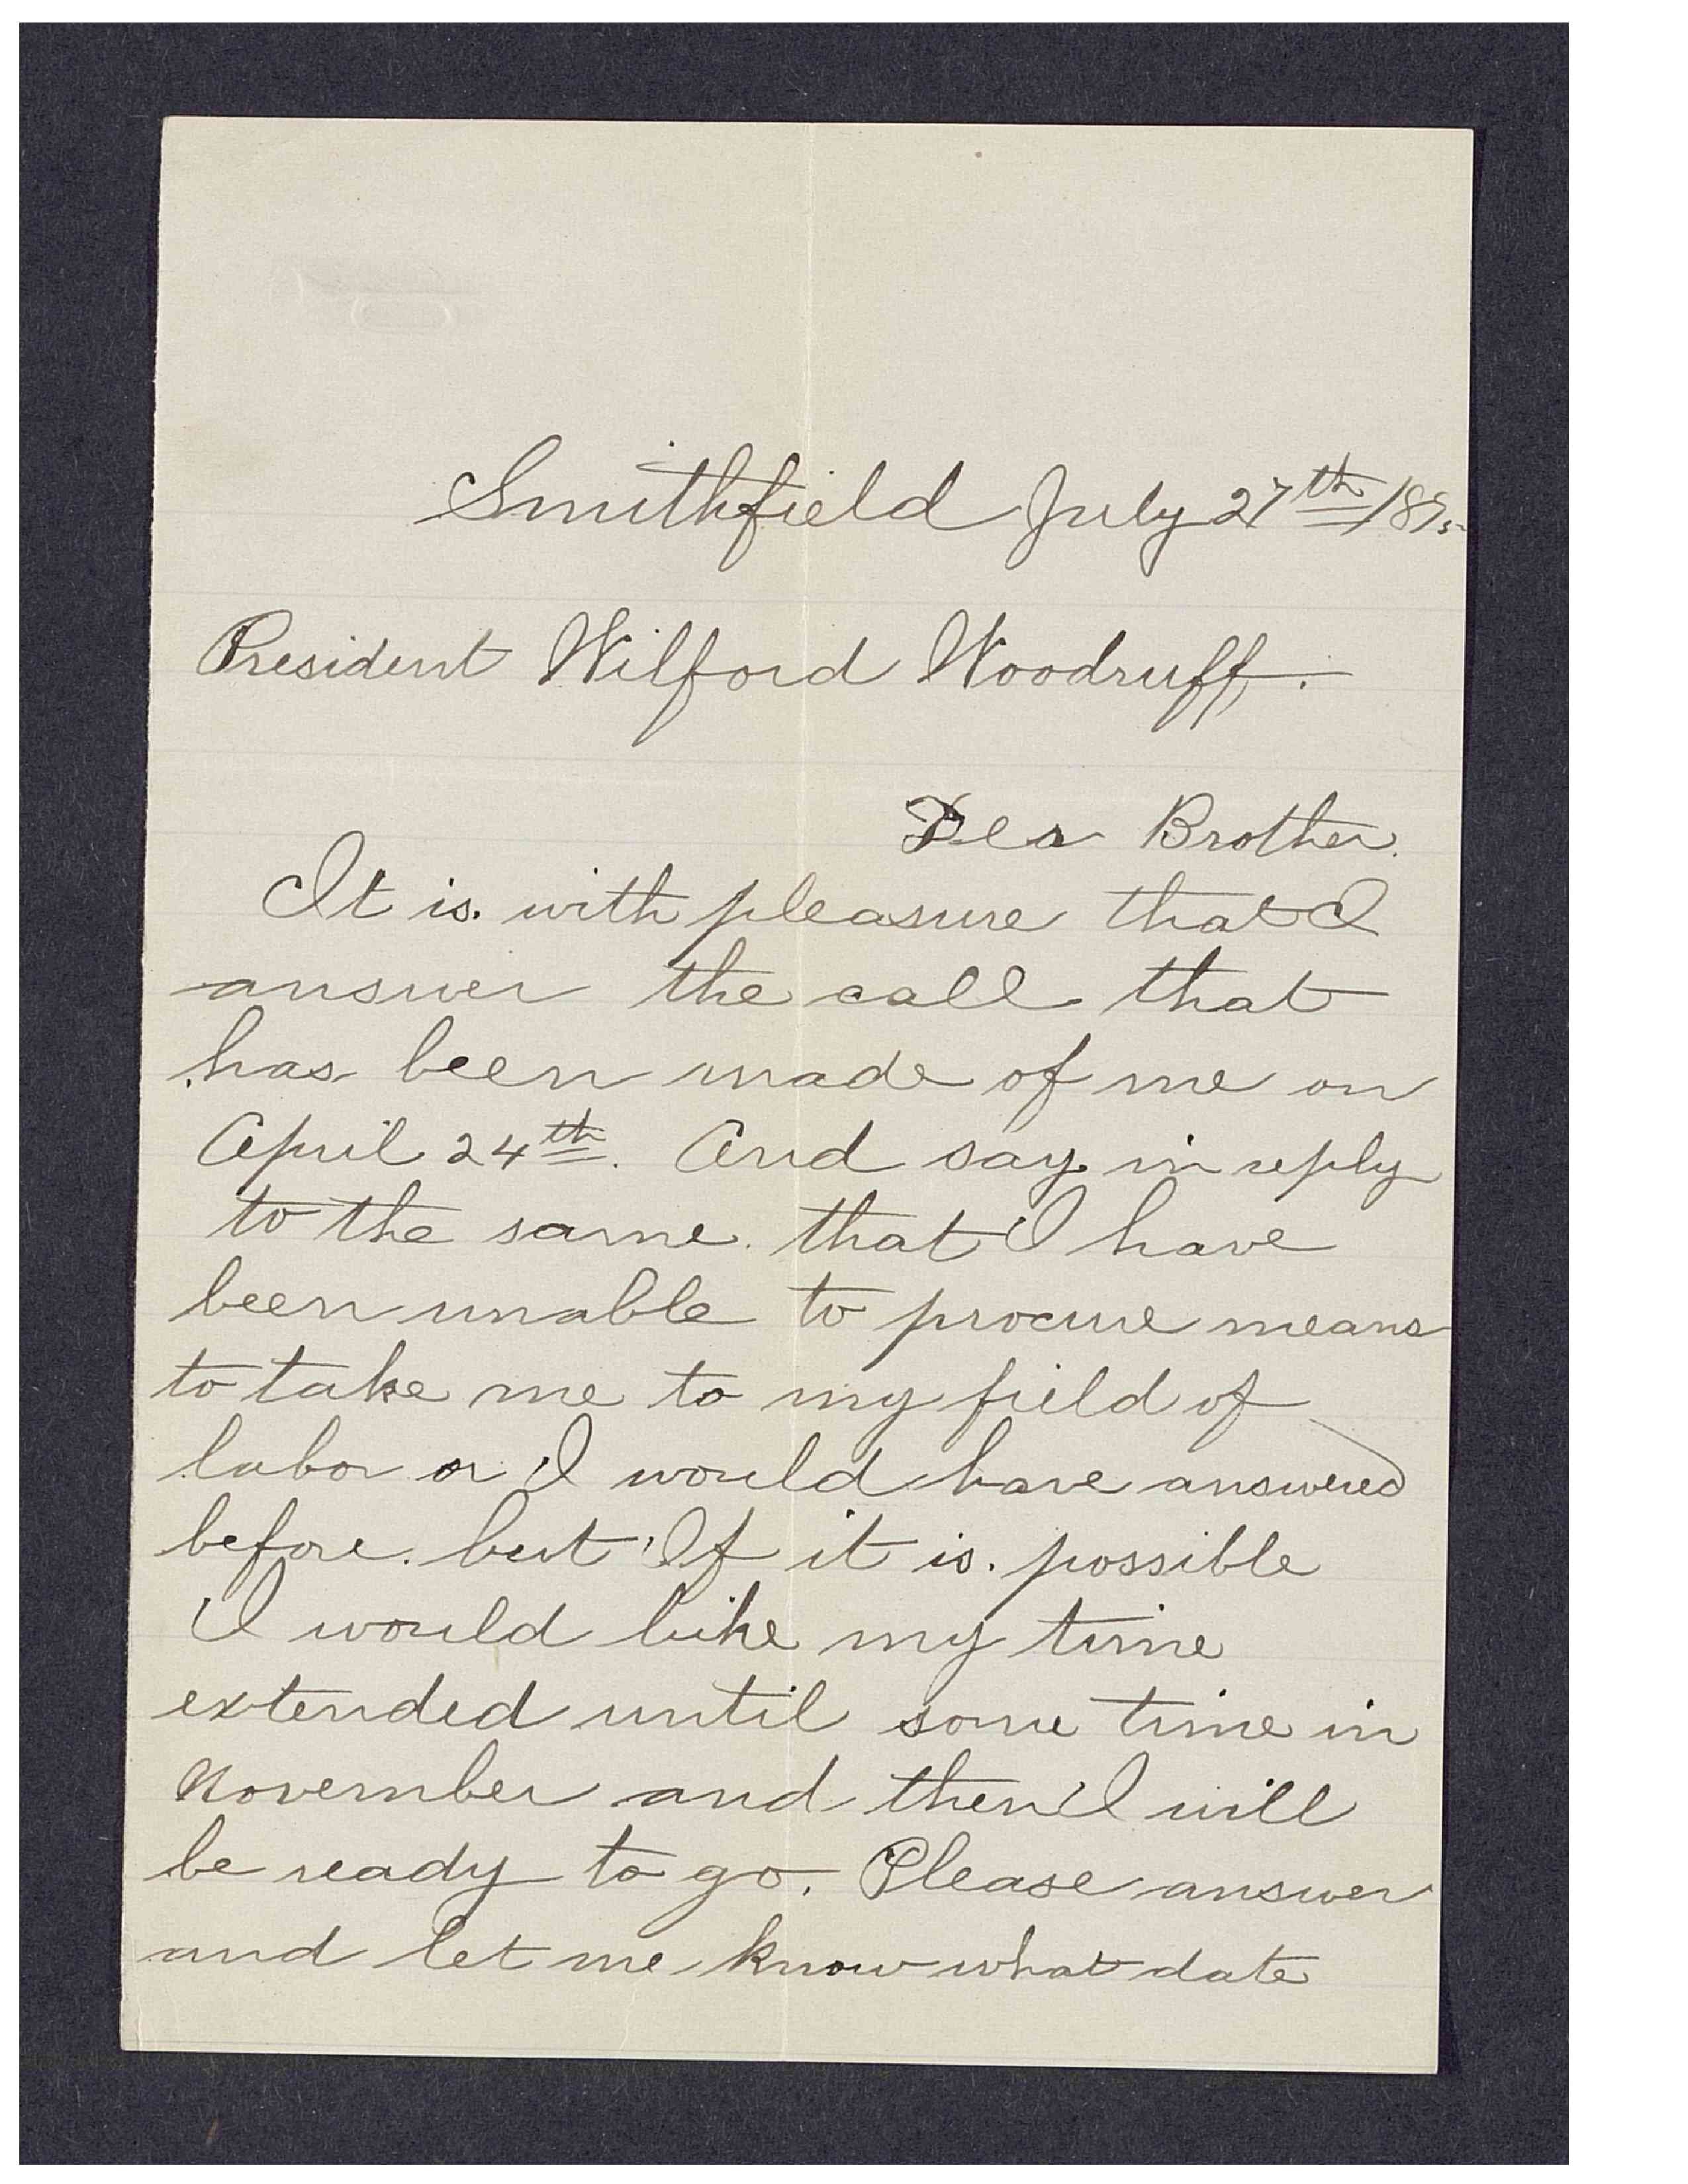 Smithfield July 27th /895
President Wilford Woodruff.
Dear Brother.
It is. with pleasure that I
answer the call that
has been made of me on
April 24th. And say in reply
to the same. that I have
been unable to procure means
to take me to my field of
labor or I would have answered
before. but If it is. possible
I would like my time
extended until some time in
November and then I will
be ready to go. Please answer
and let me know what date